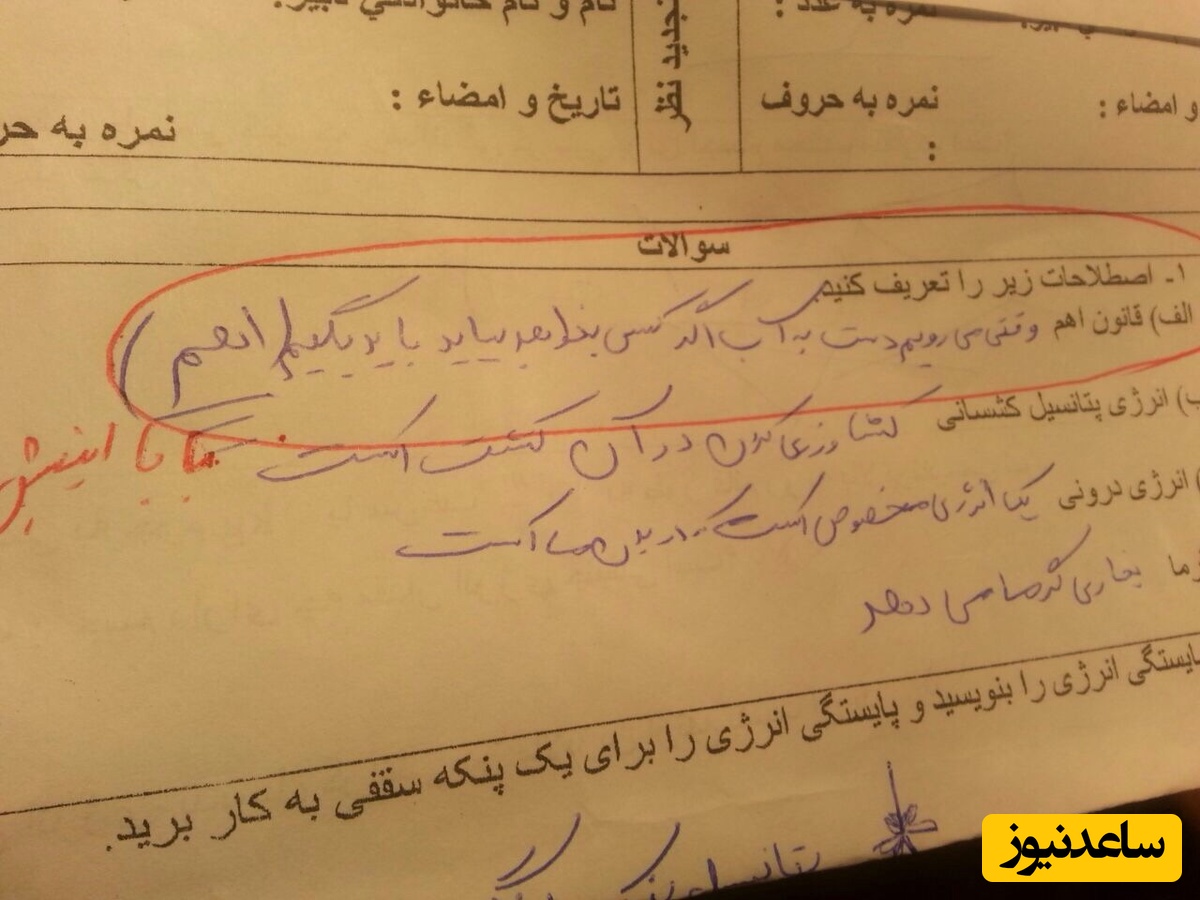 نام و نام خانوادگی دبیر:
نمره به عدد :
تجدید نظر
تاریخ و امضاء :
نمره به حروف :
و امضاء :
نمره به حر
سوالات
۱- اصطلاحات زیر را تعریف کنید.
الف) قانون اهم وقتی می رویم دست به آب اگر کسی بخواهد بیاید باید بگوییم (اهم)
ب) انرژی پتانسیل کشسانی کش در آن است
بابا انیش
) انرژی درونی یک انرژی مخصوص است که در بدن ما است
رما بخاری گرما می دهد
ایستگی انرژی را بنویسید و پایستگی انرژی را برای یک پنکه سقفی به کار برید.
ساعدنیوز